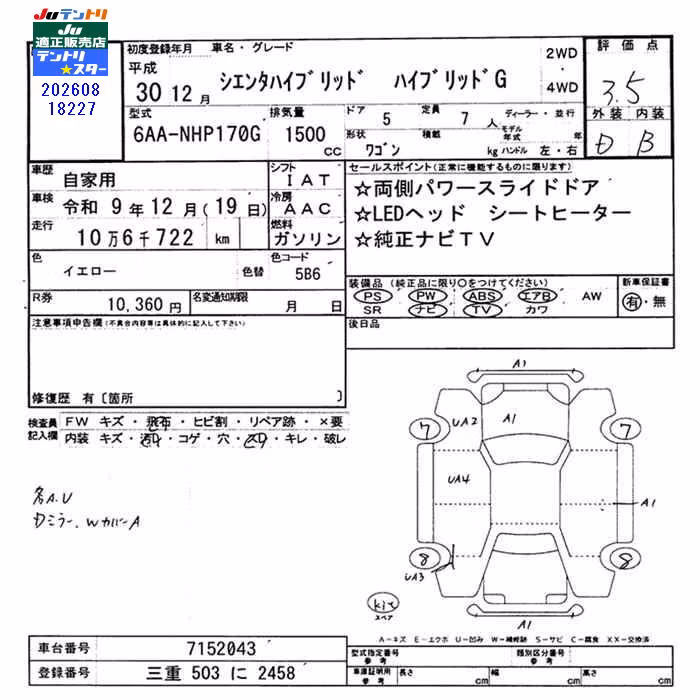 Juテントリ
Ju
適正販売店
テントリ
★スター
202608
18227
初度登録年月 車名・グレード
平成
30 12月
シエンタハイブリッド ハイブリッドG
2WD
・
4WD
評価点
3.5
外装 内装
D B
型式
6AA-NHP170G
排気量
1500 cc
ドア 5
定員 7人
ディーラー・並行
モデル年式 年
形状 ワゴン
積載 kg
ハンドル 左・右
車歴 自家用
シフト IAT
車検 令和 9年12月(19日)
冷房 AAC
走行 10万6千722 km
燃料 ガソリン
色 イエロー
色替
色コード 5B6
R券 10,360円
名変通知期限 月 日
セールスポイント(正常に機能するものに限ります)
☆両側パワースライドドア
☆LEDヘッド シートヒーター
☆純正ナビTV
装備品(純正品に限り○をつけてください)
PS PW ABS エアB AW
SR ナビ TV カワ
新車保証書
有・無
後日品
注意事項申告欄(不具合内容等は具体的に記入して下さい)
修復歴 有〔箇所 〕
検査員記入欄
FW キズ・飛石・ヒビ割・リペア跡・×要
内装 キズ・汚れ・コゲ・穴・スレ・キレ・破レ
各A.U
Dミラー、WカバーA
A1
UA2
A1
7
7
UA4
A1
8
8
UA3
kit
スペア
A1
A−キズ E−エクボ U−凹み W−補修跡 S−サビ C−腐食 XX−交換済
車台番号 7152043
登録番号 三重 503 に 2458
型式指定番号
参考
類別区分番号
参考
車庫証明用
参考
長さ cm
幅 cm
高さ cm